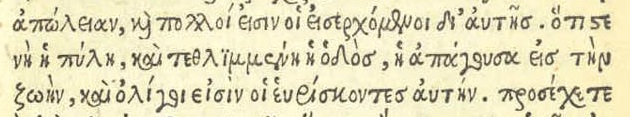 ἀπώλειαν, καὶ πολλοί εἰσιν οἱ εἰσερχόμενοι δι' αὐτῆς. ὅτι στε
νὴ ἡ πύλη, καὶ τεθλιμμένη ἡ ὁδὸς, ἡ ἀπάγουσα εἰς τὴν
ζωὴν, καὶ ὀλίγοι εἰσὶν οἱ εὑρίσκοντες αὐτήν. προσέχετε